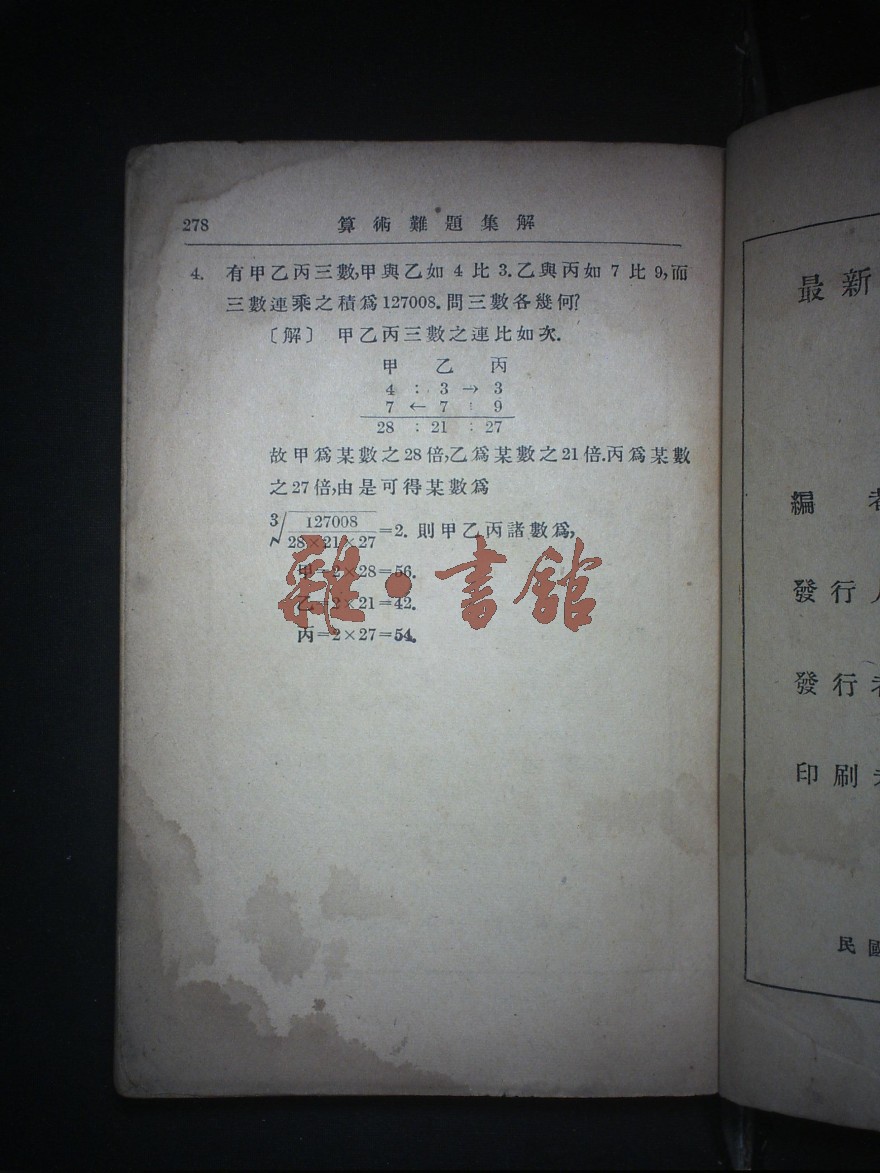 278 算術難題集解
4. 有甲乙丙三數,甲與乙如 4 比 3.乙與丙如 7 比 9,而
三數連乘之積爲127008.問三數各幾何?
〔解〕 甲乙丙三數之連比如次.
甲 乙 丙
4 : 3 → 3
7 ← 7 : 9
28 : 21 : 27
故甲爲某數之28倍,乙爲某數之21倍.丙爲某數
之27倍,由是可得某數爲
∛(127008/28×21×27)=2. 則甲乙丙諸數爲,
甲=2×28=56.
乙=2×21=42.
丙=2×27=54.
雜·書館
最新
編
發行
發行者
印刷
民國